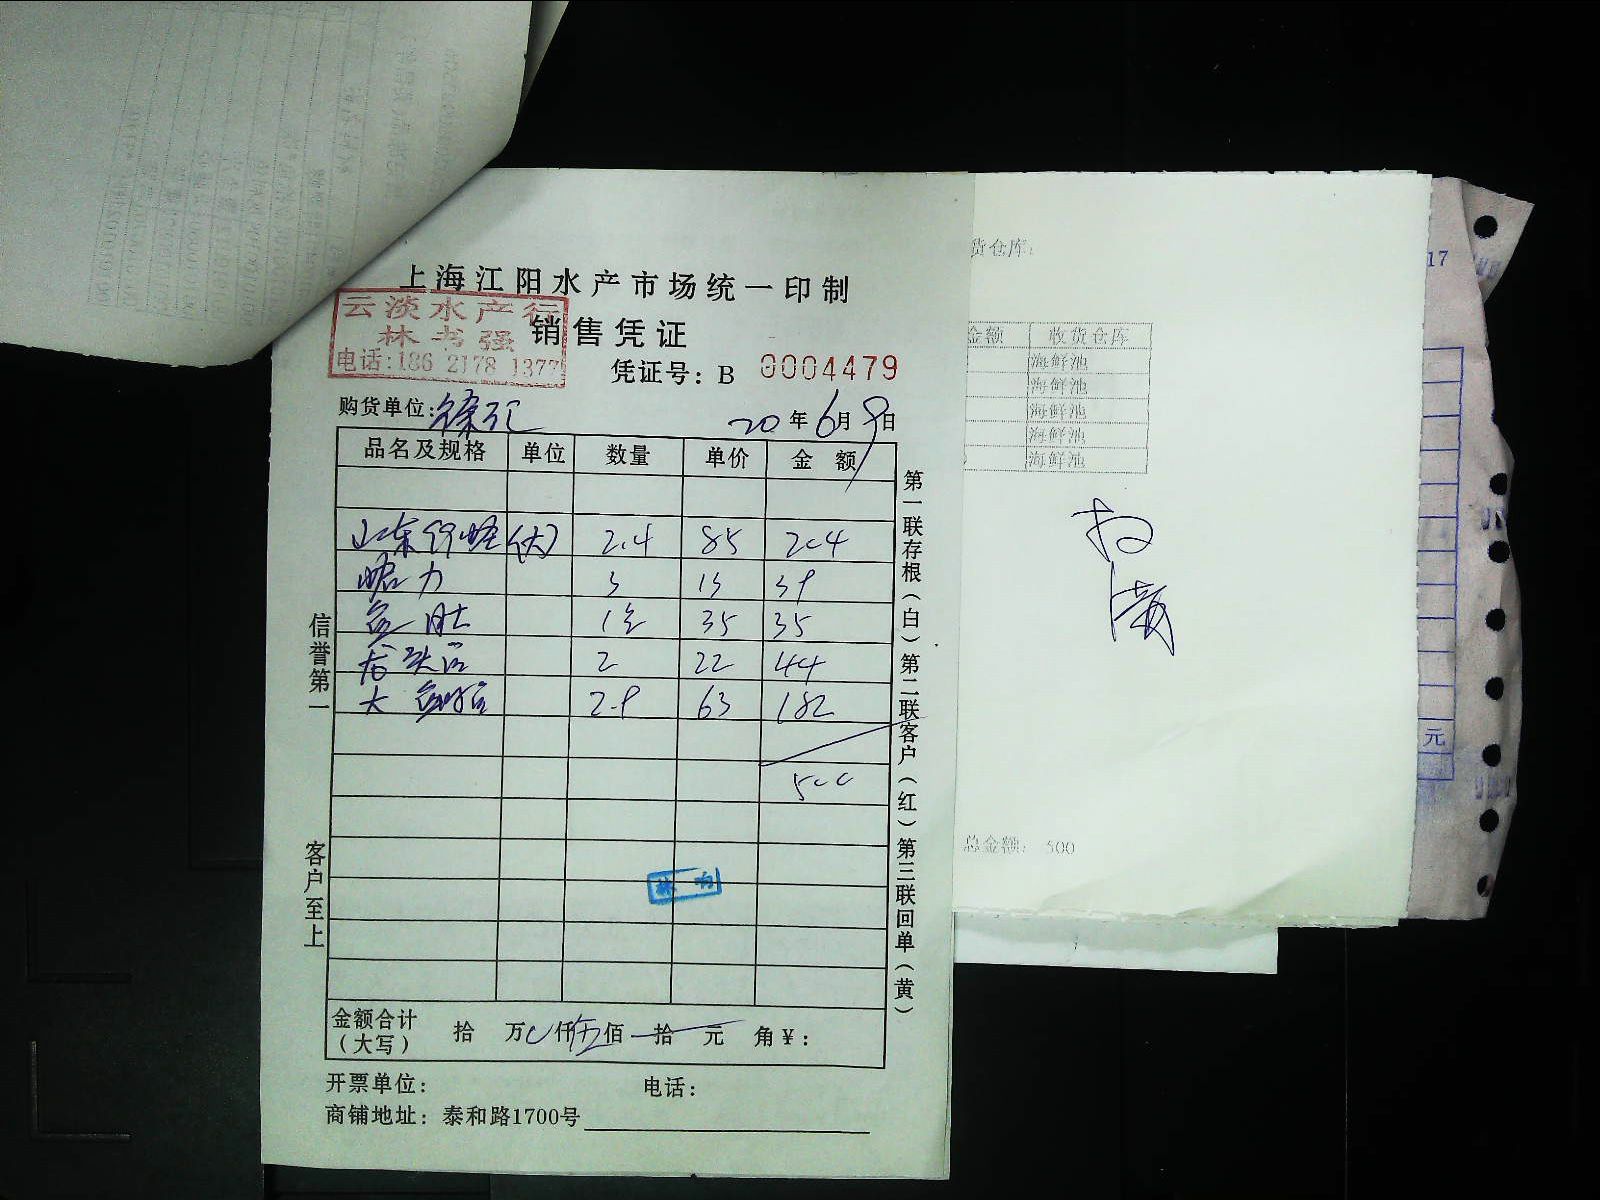 上海江阳水产市场统一印制
云淡水产行
林书强
电话:186 2178 1377
销售凭证
凭证号: B 0004479
购货单位:徐汇 20年6月9日
品名及规格 单位 数量 单价 金额
山东 (大) 2.4 85 204
蛤力 3 13 39
鱼肚 1包 35 35
龙头 2 22 44
大 2.9 63 182
500
林
金额合计(大写) 拾 万 仟伍佰 拾 元 角¥:
开票单位: 电话:
商铺地址: 泰和路1700号
信誉第一
客户至上
第一联存根(白)第二联客户(红)第三联回单(黄)
货仓库:
金额 收货仓库
海鲜池
海鲜池
海鲜池
海鲜池
海鲜池
总金额: 500
17
元